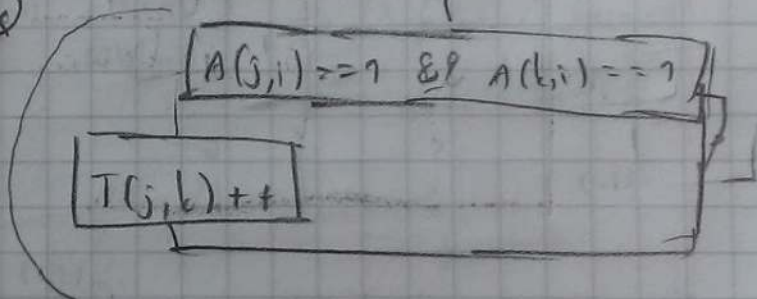 A(j,i) == 1 && A(k,i) == 1
T(j,k)++